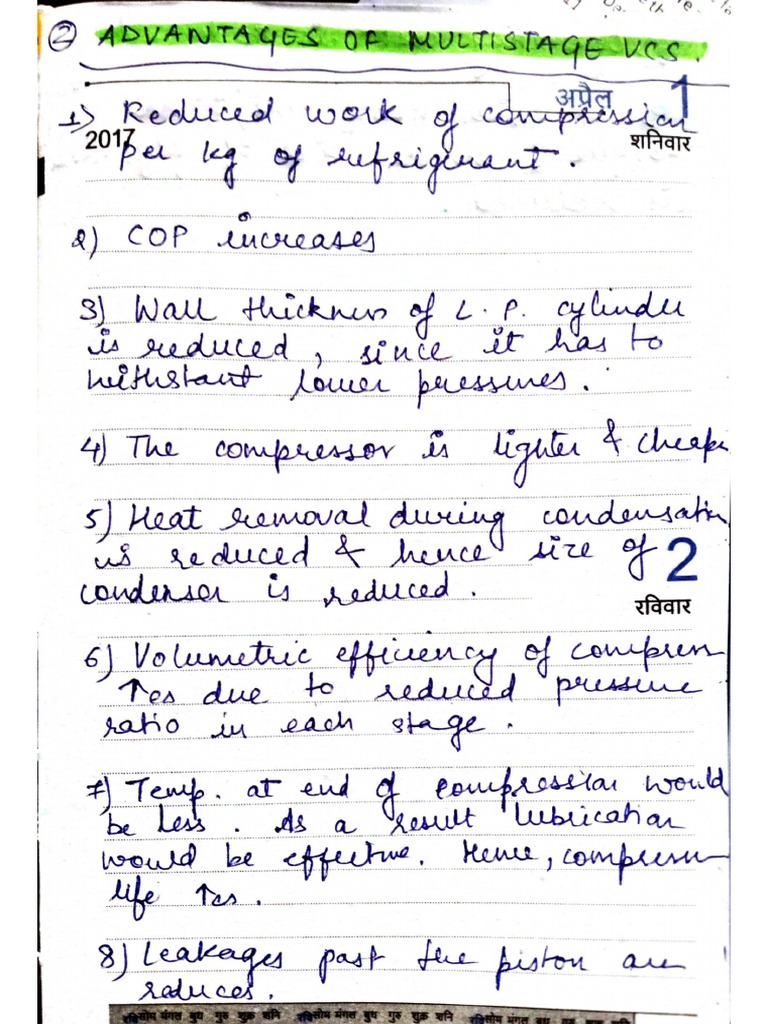 ② ADVANTAGES OF MULTISTAGE VCS.
अप्रैल 1
1) Reduced work of compression
2017 शनिवार
per kg of refrigirant.
2) COP increases
3) Wall thickness of L.P. cylinder
is reduced, since it has to
withstant lower pressures.
4) The compressor is lighter & cheape
5) Heat removal during condensation
is reduced & hence size of
2
condensor is reduced.
रविवार
6) Volumetric efficiency of compressor
↑es due to reduced pressure
ratio in each stage.
7) Temp. at end of compression would
be less. As a result lubrication
would be effective. Hence, compressor
life ↑es.
8) Leakages past the piston are
reduces.
रवि सोम मंगल बुध गुरु शुक्र शनि रवि सोम मंगल बुध गुरु शुक्र शनि